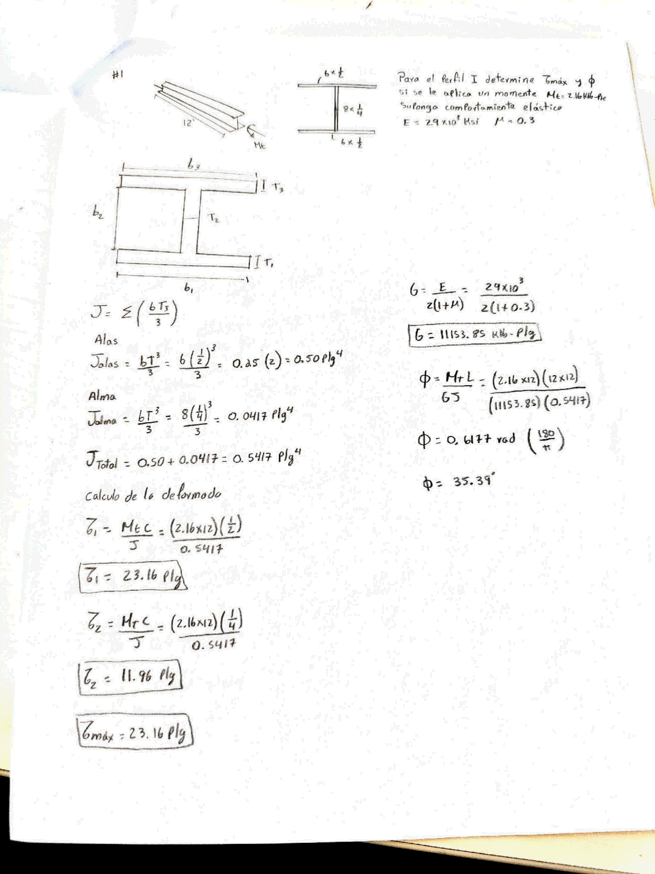 #1
6 x ½
8 x ¼
6 x ½
12'
Mt
Para el Perfil I determine τmáx y ϕ
si se le aplica un momente Mt = 2.16 Klb-Pie
Suponga comportamiento elástico
E = 29x10³ Ksi μ = 0.3
b₃
T₃
b₂
T₂
T₁
b₁
J = Σ (bT³/3)
Alas
Jalas = bT³/3 = 6(½)³/3 = 0.25 (2) = 0.50 Plg⁴
Alma
Jalma = bT³/3 = 8(¼)³/3 = 0.0417 Plg⁴
JTotal = 0.50 + 0.0417 = 0.5417 Plg⁴
Calculo de la deformado
τ₁ = Mt C/J = (2.16x12)(½)/0.5417
τ₁ = 23.16 Plg
τ₂ = MT C/J = (2.16x12)(¼)/0.5417
τ₂ = 11.96 Plg
τmáx = 23.16 Plg
G = E/2(1+μ) = 29x10³/2(1+0.3)
G = 11153.85 Klb-Plg
ϕ = MT L/GJ = (2.16 x12)(12x12)/(11153.85)(0.5417)
ϕ = 0.6177 rad (180/π)
ϕ = 35.39°